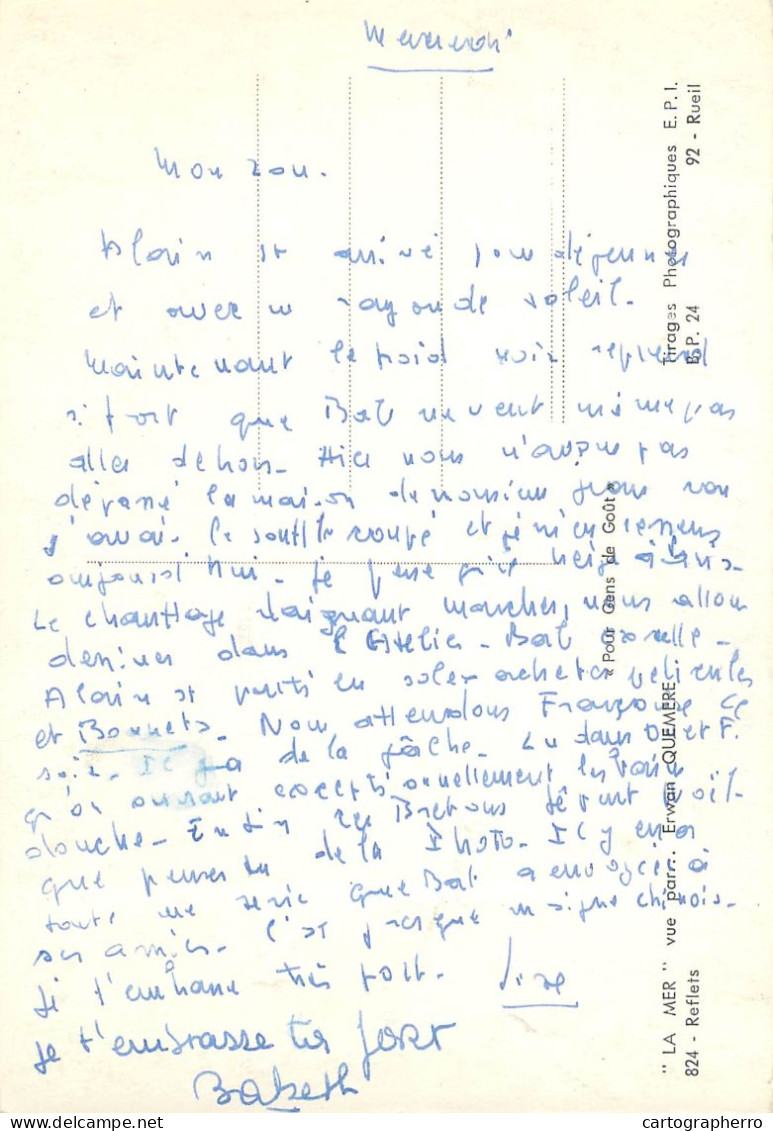 Mercredi
Mon zou.
Alain est arrivé pour déjeuner
et avec un rayon de soleil.
Maintenant le froid noir reprend
si fort que Bab ne veut même pas
aller dehors. Hier nous n'avons pas
dépassé la maison de monsieur
j'avais le souffle coupé et je m'en ressens
aujourd'hui. Je pense qu'il neige à
Le chauffage daignant marcher, nous allons
dessiner dans l'Atelier. Bab
Alain est parti en acheter pellicules
et Bonnets. Nous attendons Françoise ce
soir. Il y a de la gâche. Lu dans O. et F.
qu'on ouvrait exceptionnellement les bains
douche. Enfin ces Bretons
que penses tu de la Photo. Il y en a
toute une série que Bab a envoyée à
ses amies. C'est presque un signe chinois.
Je t'embrasse très fort. Lise
Je t'embrasse très fort
Babeth
" LA MER " vue par... Erwan QUEMERE
824 - Reflets
« Pour Gens de Goût »
Tirages Photographiques E. P. I.
B. P. 24 92 - Rueil
www.delcampe.net
cartographerro